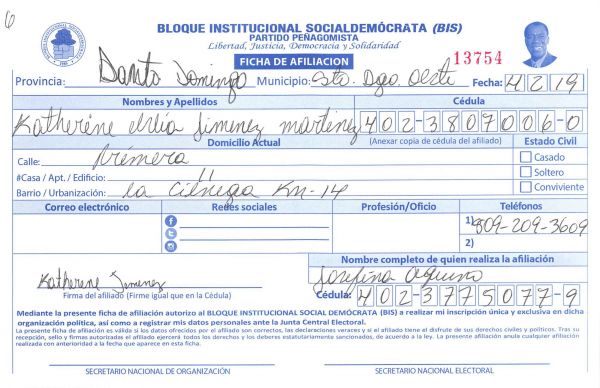 6
BLOQUE INSTITUCIONAL SOCIALDEMÓCRATA (BIS)
PARTIDO PEÑAGOMISTA
Libertad, Justicia, Democracia y Solidaridad
FICHA DE AFILIACION
13754
Provincia: Santo Domingo Municipio: Sto. Dgo. Oeste Fecha: 4 2 19
Nombres y Apellidos Cédula
Katherine Jimenez martinez 402-3807006-0
Domicilio Actual (Anexar copia de cédula del afiliado) Estado Civil
Calle: Primera Casado
#Casa / Apt. / Edificio: 11 Soltero
Barrio / Urbanización: la Cienega Km-14 Conviviente
Correo electrónico Redes sociales Profesión/Oficio Teléfonos
1) 809-209-3609
2)
Nombre completo de quien realiza la afiliación
Katherene Jimenez Josefina Aquino
Firma del afiliado (Firme igual que en la Cédula) Cédula: 402-3775077-9
Mediante la presente ficha de afiliación autorizo al BLOQUE INSTITUCIONAL SOCIAL DEMÓCRATA (BIS) a realizar mi inscripción única y exclusiva en dicha
organización política, así como a registrar mis datos personales ante la Junta Central Electoral.
La presente ficha de afiliación es válida si los datos ofrecidos por el afiliado son correctos, las declaraciones veraces y si el afiliado tiene el disfrute de sus derechos civiles y políticos. Tras su
recepción, sello y firmas autorizadas el afiliado ejercerá todos los derechos y los deberes estatutariamente sancionados, de acuerdo a la ley. La presente afiliación anula cualquier afiliación
realizada con anterioridad a la fecha que aparece en esta ficha.
SECRETARIO NACIONAL DE ORGANIZACIÓN SECRETARIO NACIONAL ELECTORAL